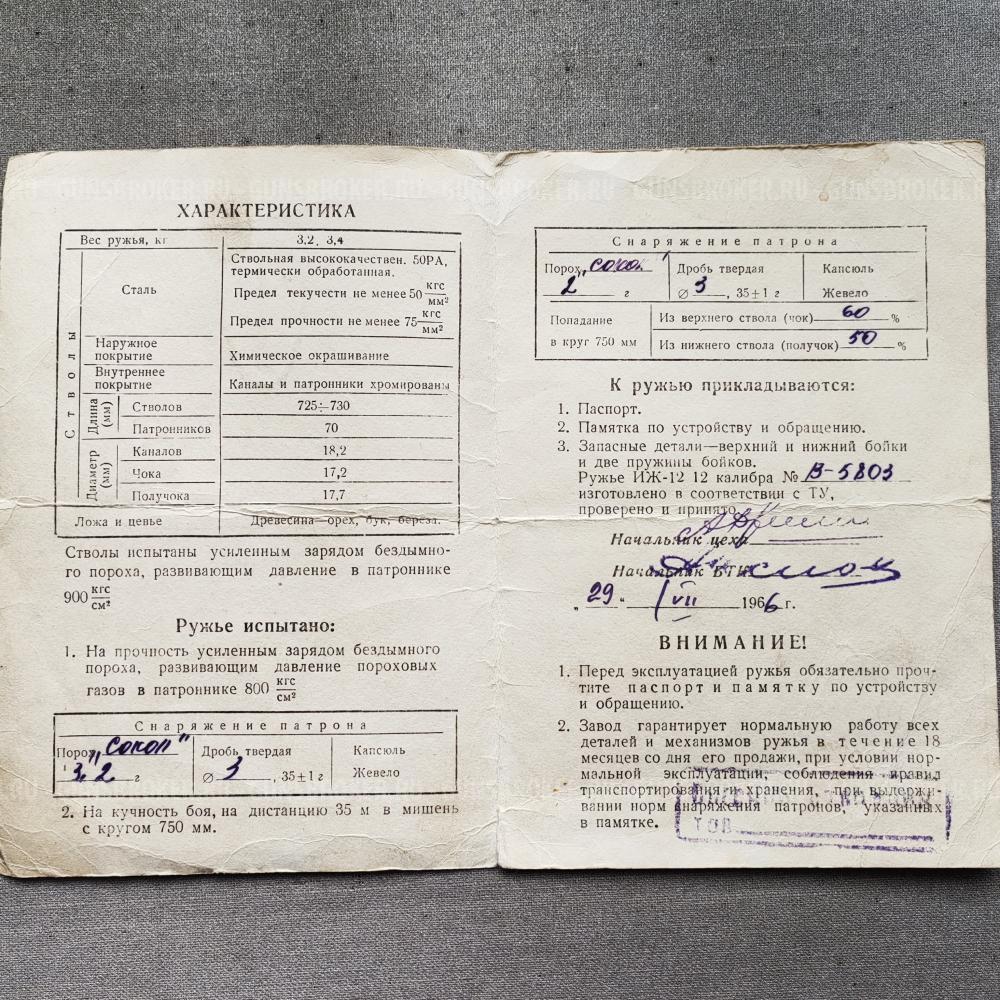 ХАРАКТЕРИСТИКА
Вес ружья, кг 3,2, 3,4
Стволы
Сталь
Ствольная высококачествен. 50РА,
термически обработанная.
Предел текучести не менее 50 кгс/мм²
Предел прочности не менее 75 кгс/мм²
Наружное
покрытие Химическое окрашивание
Внутреннее
покрытие Каналы и патронники хромированы
Длина (мм)
Стволов 725÷730
Патронников 70
Диаметр (мм)
Каналов 18,2
Чока 17,2
Получока 17,7
Ложа и цевье Древесина—орех, бук, береза.
Стволы испытаны усиленным зарядом бездымно-
го пороха, развивающим давление в патроннике
900 кгс/см²
Ружье испытано:
1. На прочность усиленным зарядом бездымного
пороха, развивающим давление пороховых
газов в патроннике 800 кгс/см²
Снаряжение патрона
Порох „Сокол" Дробь твердая Капсюль
3,2 г ⌀ 3, 35±1 г Жевело
2. На кучность боя, на дистанцию 35 м в мишень
с кругом 750 мм.
Снаряжение патрона
Порох „Сокол" Дробь твердая Капсюль
2 г ⌀ 3, 35±1 г Жевело
Попадание
в круг 750 мм
Из верхнего ствола (чок) 60 %
Из нижнего ствола (получок) 50 %
К ружью прикладываются:
1. Паспорт.
2. Памятка по устройству и обращению.
3. Запасные детали—верхний и нижний бойки
и две пружины бойков.
Ружье ИЖ-12 12 калибра № В-5803
изготовлено в соответствии с ТУ,
проверено и принято.
Начальник цеха
Начальник БТК
„29" VII 1966 г.
ВНИМАНИЕ!
1. Перед эксплуатацией ружья обязательно проч-
тите паспорт и памятку по устройству
и обращению.
2. Завод гарантирует нормальную работу всех
деталей и механизмов ружья в течение 18
месяцев со дня его продажи, при условии нор-
мальной эксплуатации, соблюдения правил
транспортирования и хранения, при выдержи-
вании норм снаряжения патронов, указанных
в памятке.
GUNSBROKER.RU GUNSBROKER.RU GUNSBROKER.RU GUNSBROKER.RU